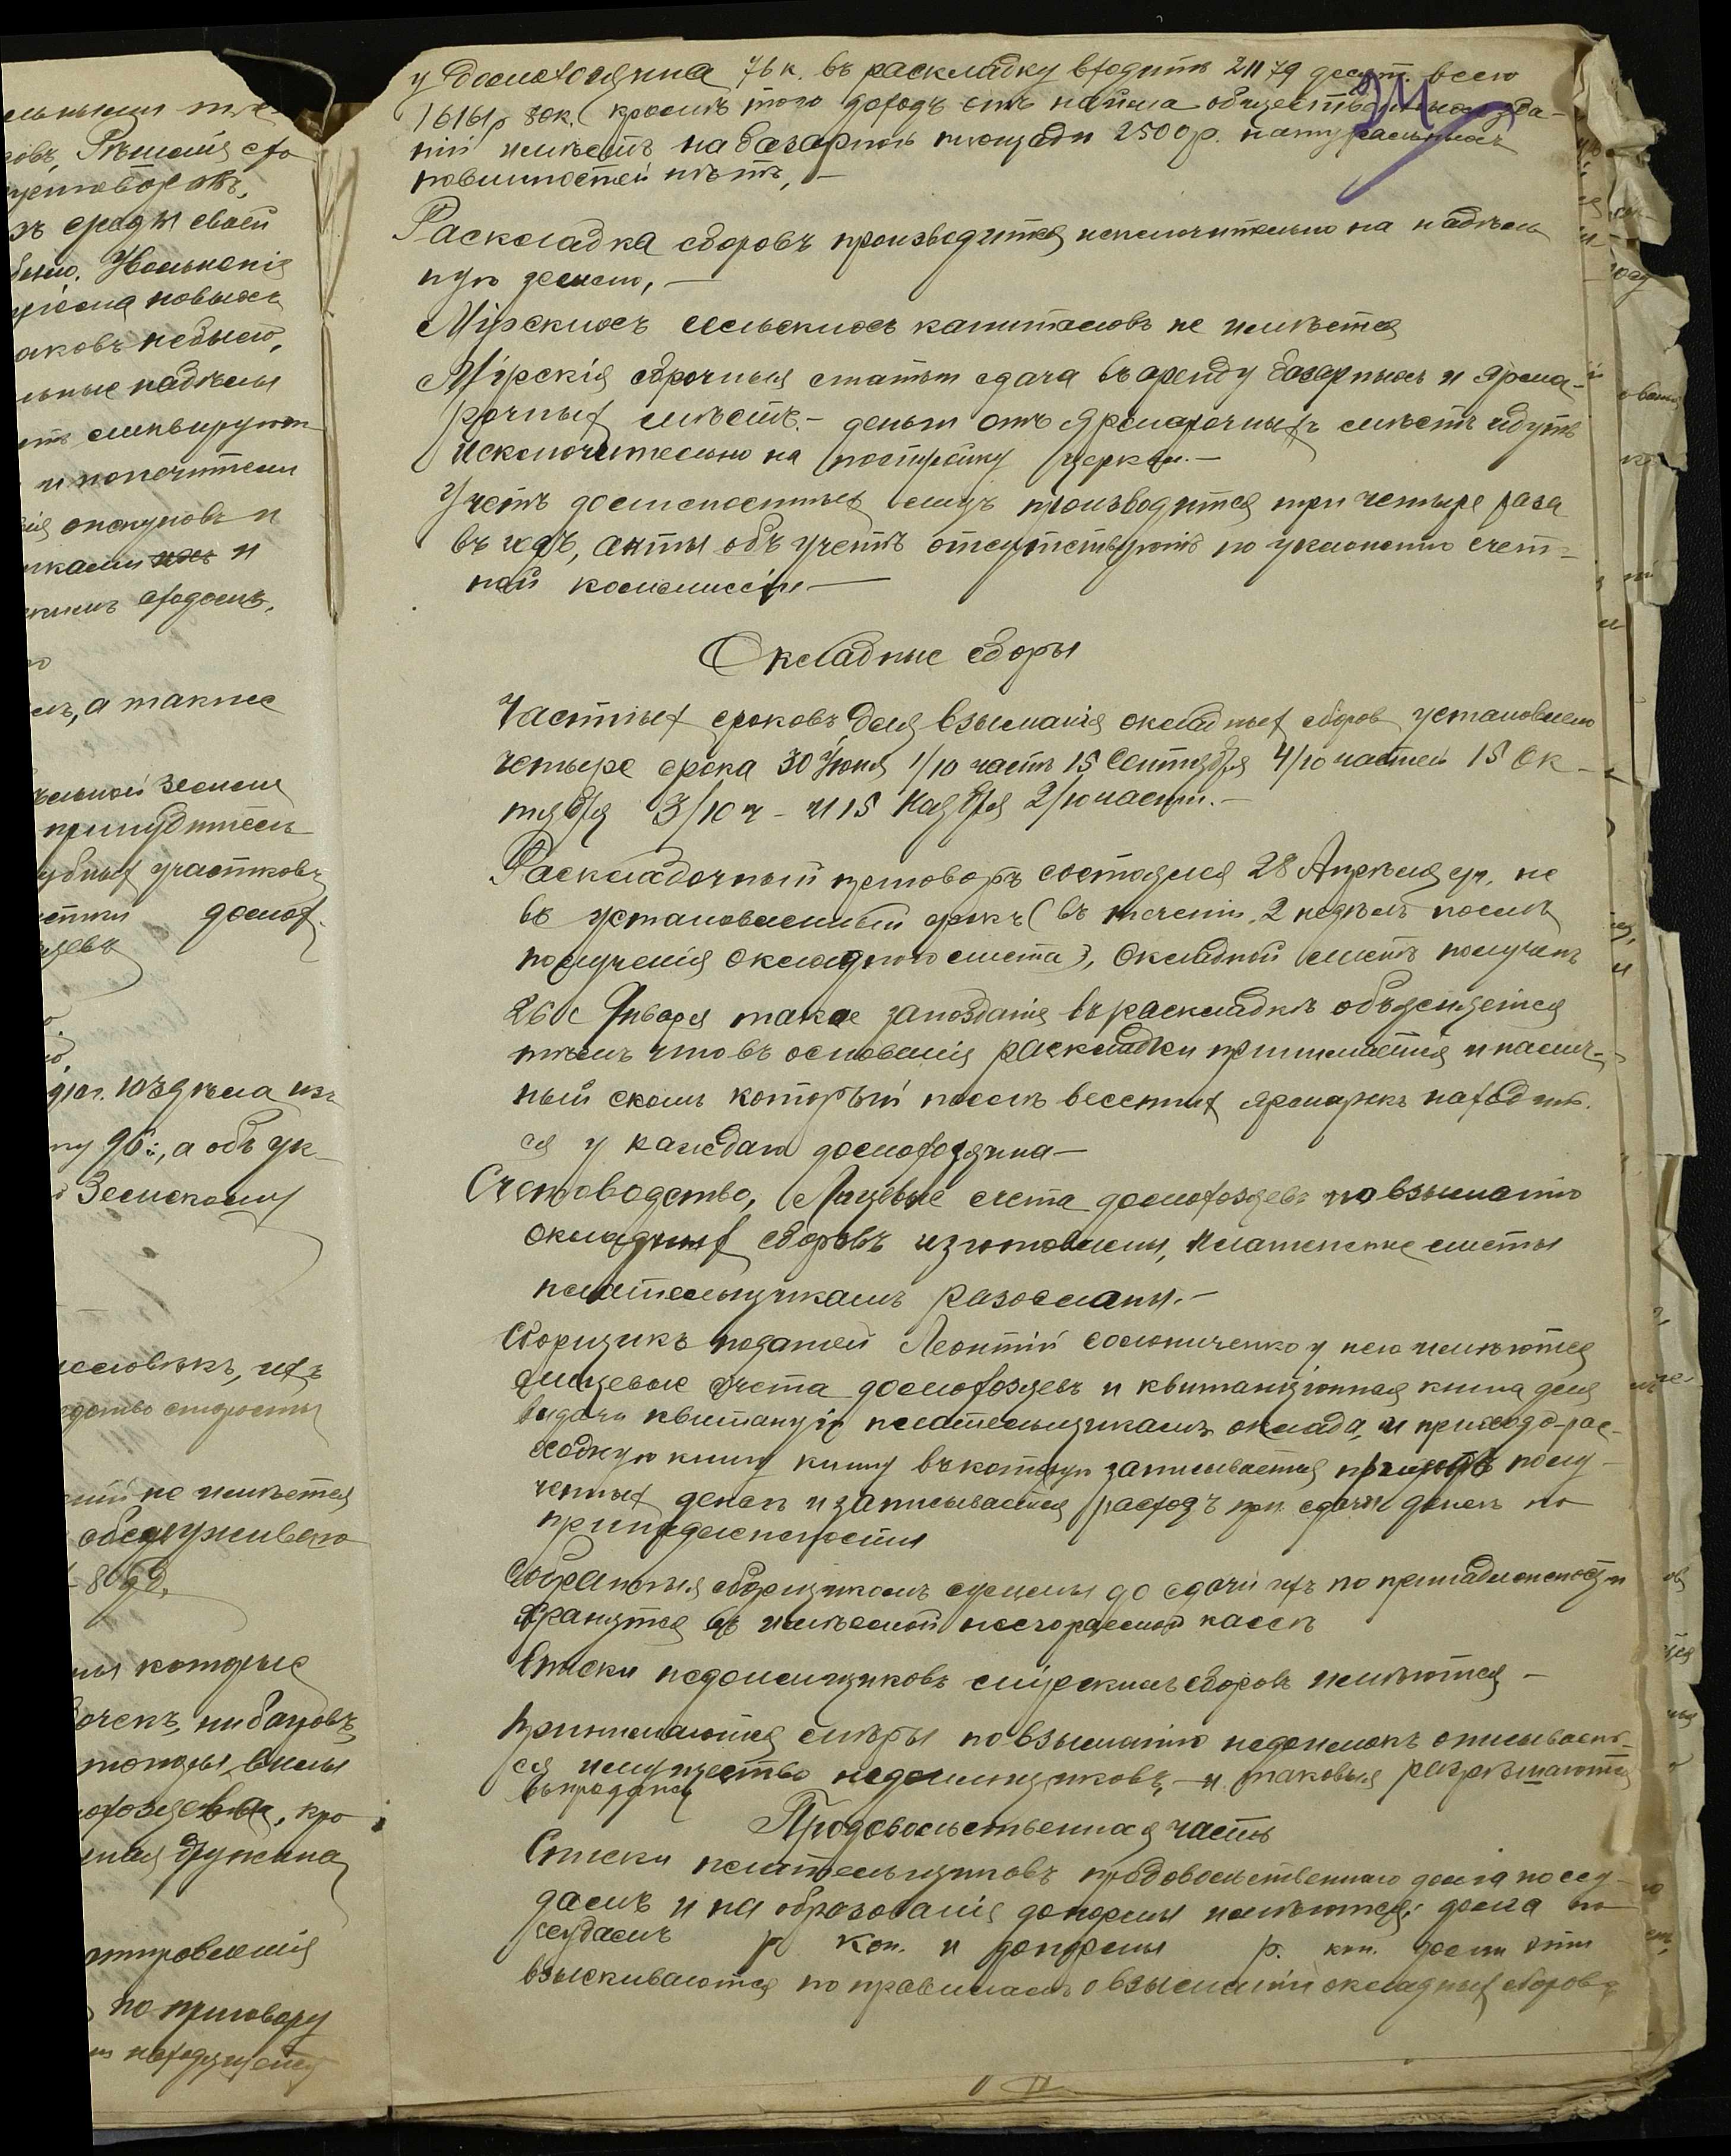 ровъ, Рѣшенія схо
приговоровъ,
зъ среды своей
было. Увольненія
пріема новыхъ
наковъ небыло,
льные надѣлы
и попечители
ія опекуновъ и
иками ихъ и
схо­домъ,
а также
ѣльной земли
принудитель
участковъ
домох
ну 96:, а объ ук
Земскому
человѣкъ, ихъ
не имѣется
обслуживаю
ны которые
бочекъ, ни багровъ
топоры, вилы
кро
дружина
по приговору
находящейся
у домохозяина 76 к. въ раскладку входитъ 21179 десят. всего
16161 р 80 к. кромѣ того доходъ отъ найма общественныхъ зда-
ній имѣетъ на базарной площади 2500 р. натуральныхъ
повинностей нѣтъ, —
Раскладка сборовъ производится исключительно на надѣль
ную землю, —
Мірскихъ сельскихъ капиталовъ не имѣется
Мірскія оброчныя статьи сдача въ аренду базарныхъ и ярма-
рочныхъ мѣстъ. — деньги отъ ярмарочныхъ мѣстъ идутъ
исключительно на постройку церкви. —
Учетъ должностныхъ лицъ производится три четыре раза
въ годъ, акты объ учетѣ отсутствуютъ по уклоненію счет-
ной коммиссіи —
Окладные сборы
Частныхъ сроковъ для взыманія окладныхъ сборов установлено
четыре срока 30 Іюня 1/10 часть 15 Сентября 4/10 частей 15 Ок-
тября 3/10 ч — и 15 Ноября 2/10 части. —
Раскладочный приговоръ состоялся 28 Апрѣля с/г. не
въ установленный срокъ (въ теченіи 2 недѣль послѣ
полученія окладного листа), Окладной листъ полученъ
26 Января такое запозданіе въ раскладкѣ объясняется
тѣмъ что въ основанія раскладки принимается и налич-
ный скотъ который послѣ весеннихъ ярмарокъ находит
ся у каждаго домохозяина —
Счетоводство, Лицевые счета домохозяевъ по взыманію
окладныхъ сборовъ изготовлены, платежные листы
плательщикамъ разосланы. —
Сборщикъ податей Леонтій Соломиченко у него имѣются
лицевые счета домохозяевъ и квитанціонная книга для
выдачи квитанцій плательщикамъ оклада, и приходо-рас-
ходную книгу книгу въ которую записывается приходъ полу-
ченныхъ денегъ и записывается расходъ при сдачи денегъ по
принадлежности
Собранныя сборщикомъ суммы до сдачи ихъ по принадлежности
хранятся въ имѣемой несгораемой кассѣ
Списки недоимщиковъ мірскихъ сборовъ имѣются —
Принимаются мѣры по взыманію недоимокъ описывает-
ся имущество недоимщиковъ, — и таковыя разрѣшаются
въ продажу
Продовольственная часть
Списки плательщиковъ продовольственнаго долга по ссу-
дамъ и на образованія имѣются: долга по
ссудамъ р коп. и р. коп. долги эти
взыскиваются по правиламъ о взыманіи окладныхъ сборовъ